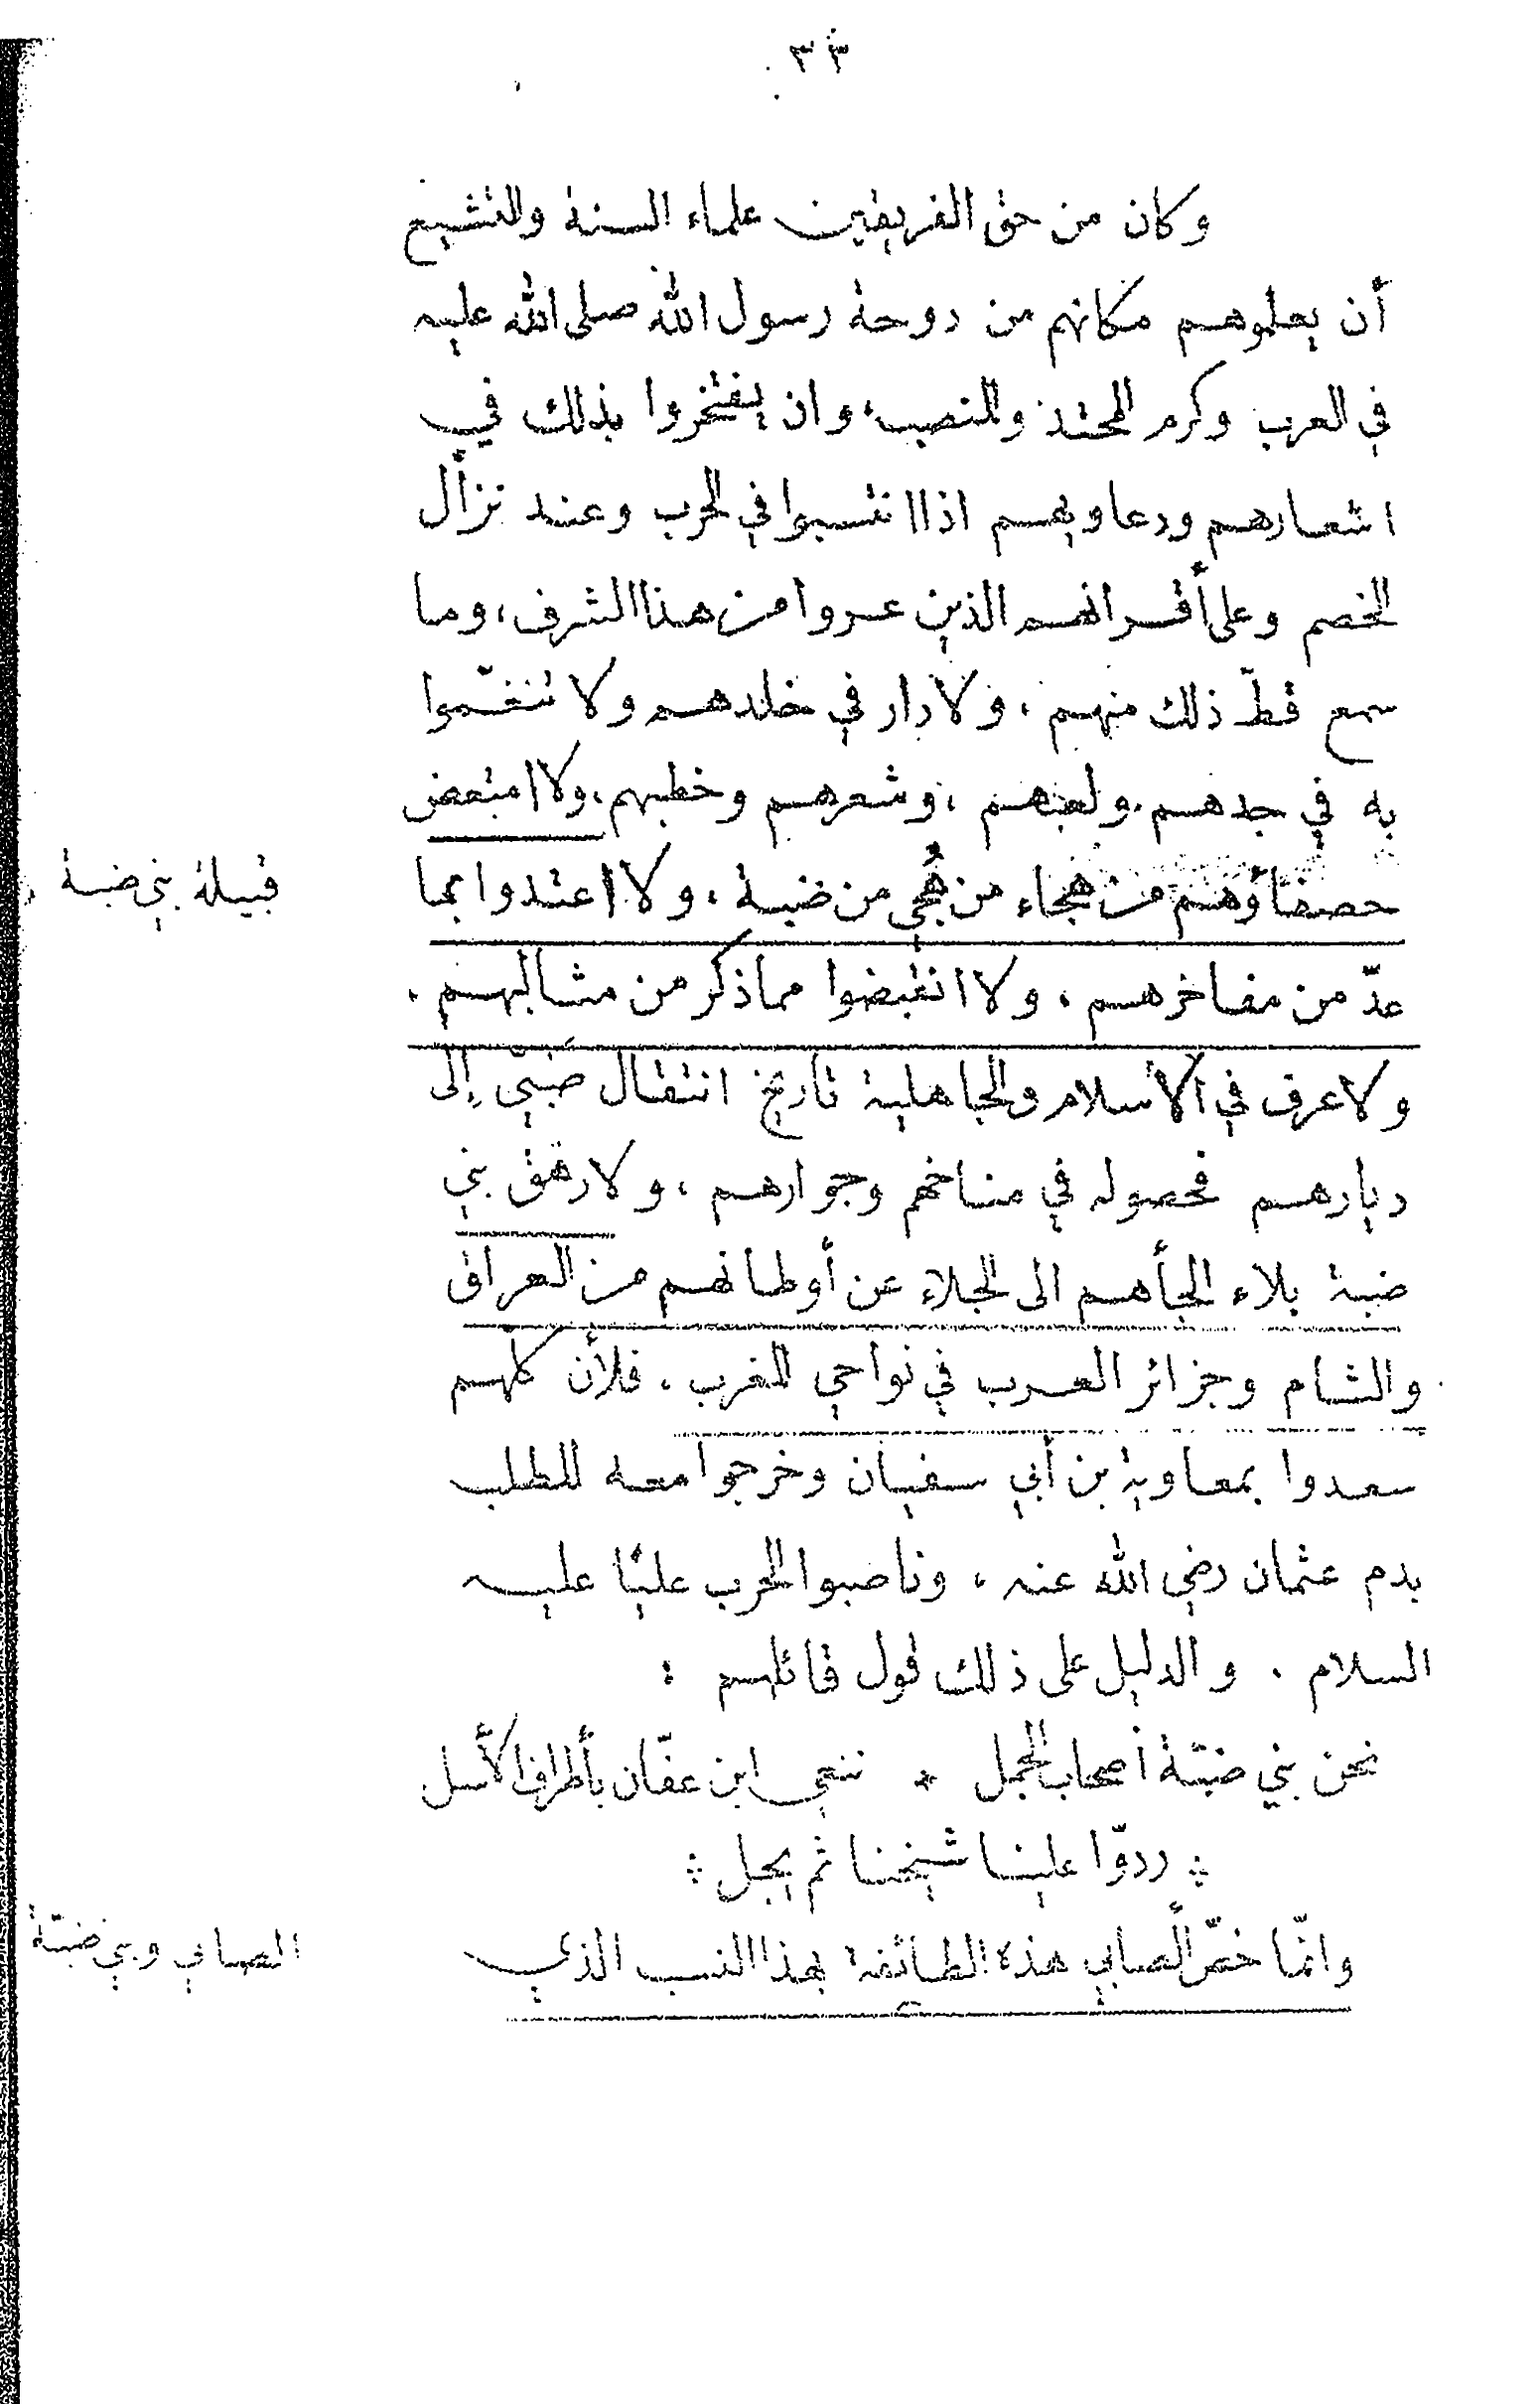 ٣٣
وكان من حق الفريقين علماء السنة والتشيع
أن يعلموهم مكانهم من دوحة رسول الله صلى الله عليه
في العرب وكرم المحتد والمنصب، وان يفتخروا بذلك في
اشعارهم ودعاويهم اذا انتسبوا في الحرب وعند نزال
الخصم وعلى أقرانهم الذين عروا من هذا الشرف، وما
سمع قطّ ذلك منهم، ولا دار في خلدهم ولا تنغّموا
به في جدهم ولعبهم، وشعرهم وخطبهم، ولا امتعض
قبيلة بني ضبة
حصفاؤهم من هجاء من هُجي من ضبة، ولا اعتدوا بما
عدّ من مفاخرهم، ولا انقبضوا مما ذكر من مثالبهم.
ولا عرف في الأسلام والجاهلية تاريخ انتقال ضَبّيّ إلى
ديارهم فحصوله في مناخهم وجوارهم، ولا رهق بني
ضبة بلاء الجأهم الى الجلاء عن أوطانهم من العراق
والشام وجزائر العرب في نواحي المغرب، فلأن كلهم
سعدوا بمعاوية بن أبي سفيان وخرجوا معه للطلب
بدم عثمان رضي الله عنه، وناصبوا الحرب عليًا عليه
السلام. والدليل على ذلك قول قائلهم:
نحن بني ضبّة أصحاب الجمل * ننعى ابن عفّان بأطراف الأسل
ردوّا علينا شيخنا ثم بجل
الصابي وبني ضبّة
وانّما خصّ الصابي هذه الطائفة بهذا النسب الذي